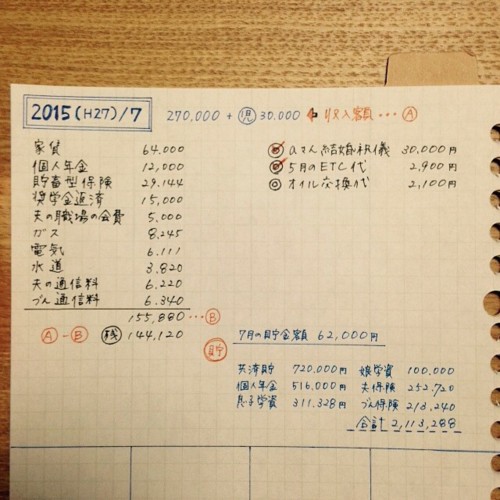 2015(H27)/7 270,000 + 児 30,000 ← 収入額… A
家賃 64,000
個人年金 12,000
貯蓄型保険 29,144
奨学金返済 15,000
夫の職場の会費 5,000
ガス 8,245
電気 6,111
水道 3,820
夫の通信料 6,220
づん通信料 6,340
155,880…B
A-B 残 144,120
◎ aさん結婚祝儀 30,000円
◎ 5月のETC代 2,900円
◎ オイル交換代 2,100円
貯 7月の貯金額 62,000円
共済貯 720,000円 娘学資 100,000
個人年金 516,000円 夫保険 252,720
息子学資 311,328円 づん保険 213,240
合計 2,113,288